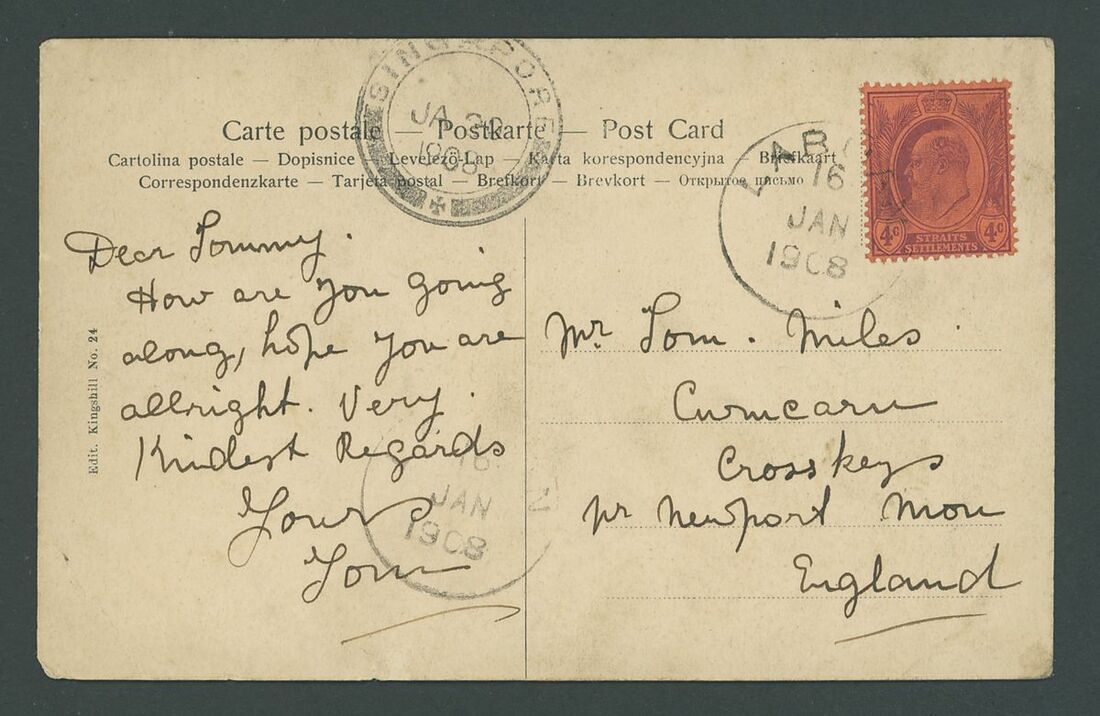 Carte postale — Postkarte — Post Card
Cartolina postale — Dopisnice — Levelező-Lap — Karta korespondencyjna — Briefkaart
Correspondenzkarte — Tarjeta postal — Brefkort — Brevkort — Открытое письмо
SINGAPORE
JA 20
1908
16
JAN
1908
4c STRAITS SETTLEMENTS 4c
Dear Tommy.
How are you going
along, hope you are
allright. Very
Kindest Regards
Yours
Tom
16
JAN
1908
Edit. Kingshill No. 24
Mr Tom. Miles.
Cwmcarn
Crosskeys
nr Newport Mon
England